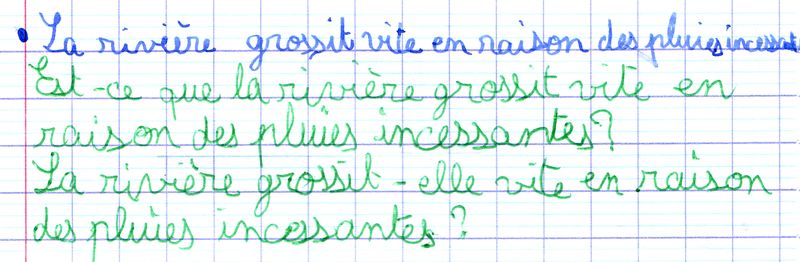 • La rivière grossit vite en raison des pluies incessantes
Est-ce que la rivière grossit vite en
raison des pluies incessantes ?
La rivière grossit-elle vite en raison
des pluies incessantes ?